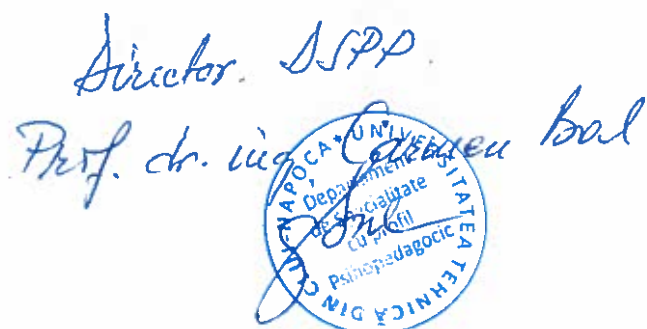 Director DSPP
Prof. dr. ing. Carmen Bal
UNIVERSITATEA TEHNICĂ DIN CLUJ-NAPOCA
Departament
de Specialitate
cu profil
Psihopedagogic